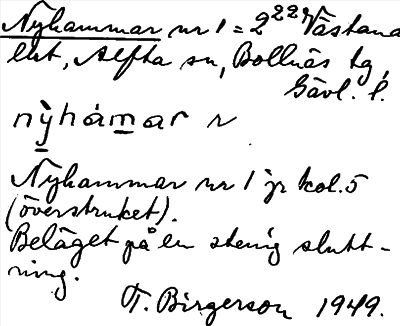 Nyhammar nr 1 = 2²²² Västana
lht, Alfta sn, Bollnäs tg,
Gävl. l.
nỳhámar r
Nyhammar nr 1 jr kol. 5
(överstruket).
Beläget på en stenig slutt-
ning.
T. Birgerson 1949.